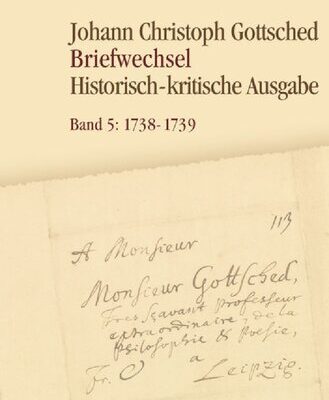 Johann Christoph Gottsched
Briefwechsel
Historisch-kritische Ausgabe
Band 5: 1738-1739
113
A Monsieur
Monsieur Gottsched,
Tres Sçavant Professeur
extraordinaire, de la
Philosophie & Poesie,
a
Fr. Leipzig.